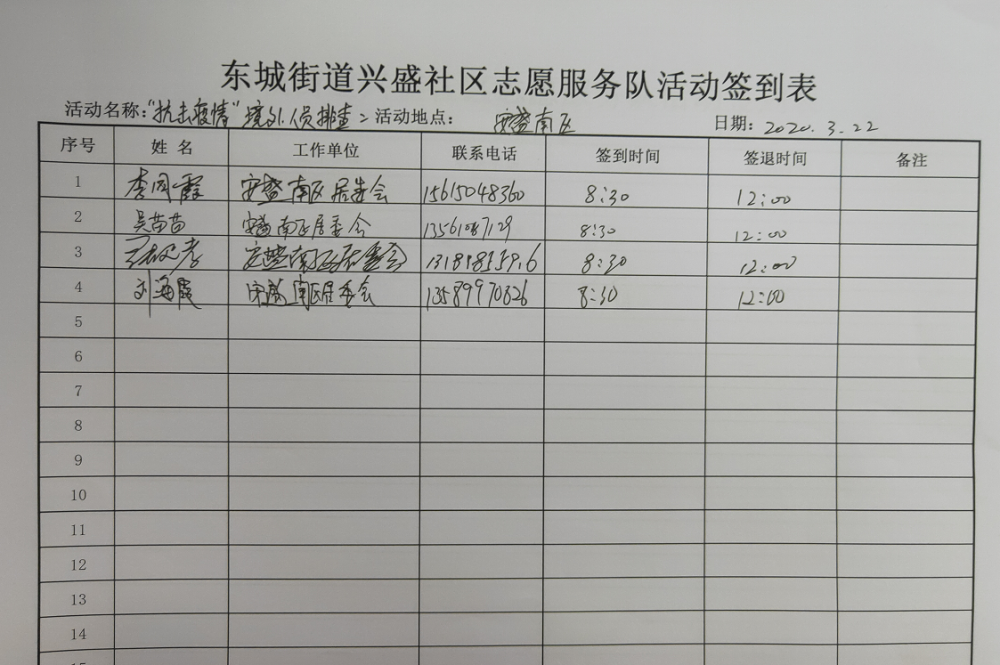 东城街道兴盛社区志愿服务队活动签到表
活动名称:"抗击疫情"境外人员排查 活动地点: 安盛南区 日期: 2020.3.22
序号 姓名 工作单位 联系电话 签到时间 签退时间 备注
1 李同霞 安盛南区居委会 15615048360 8:30 12:00
2 吴苗苗 安盛南区居委会 8:30 12:00
3 安盛南区居委会 8:30 12:00
4 刘海霞 安盛南区居委会 13589970826 8:30 12:00
5
6
7
8
9
10
11
12
13
14